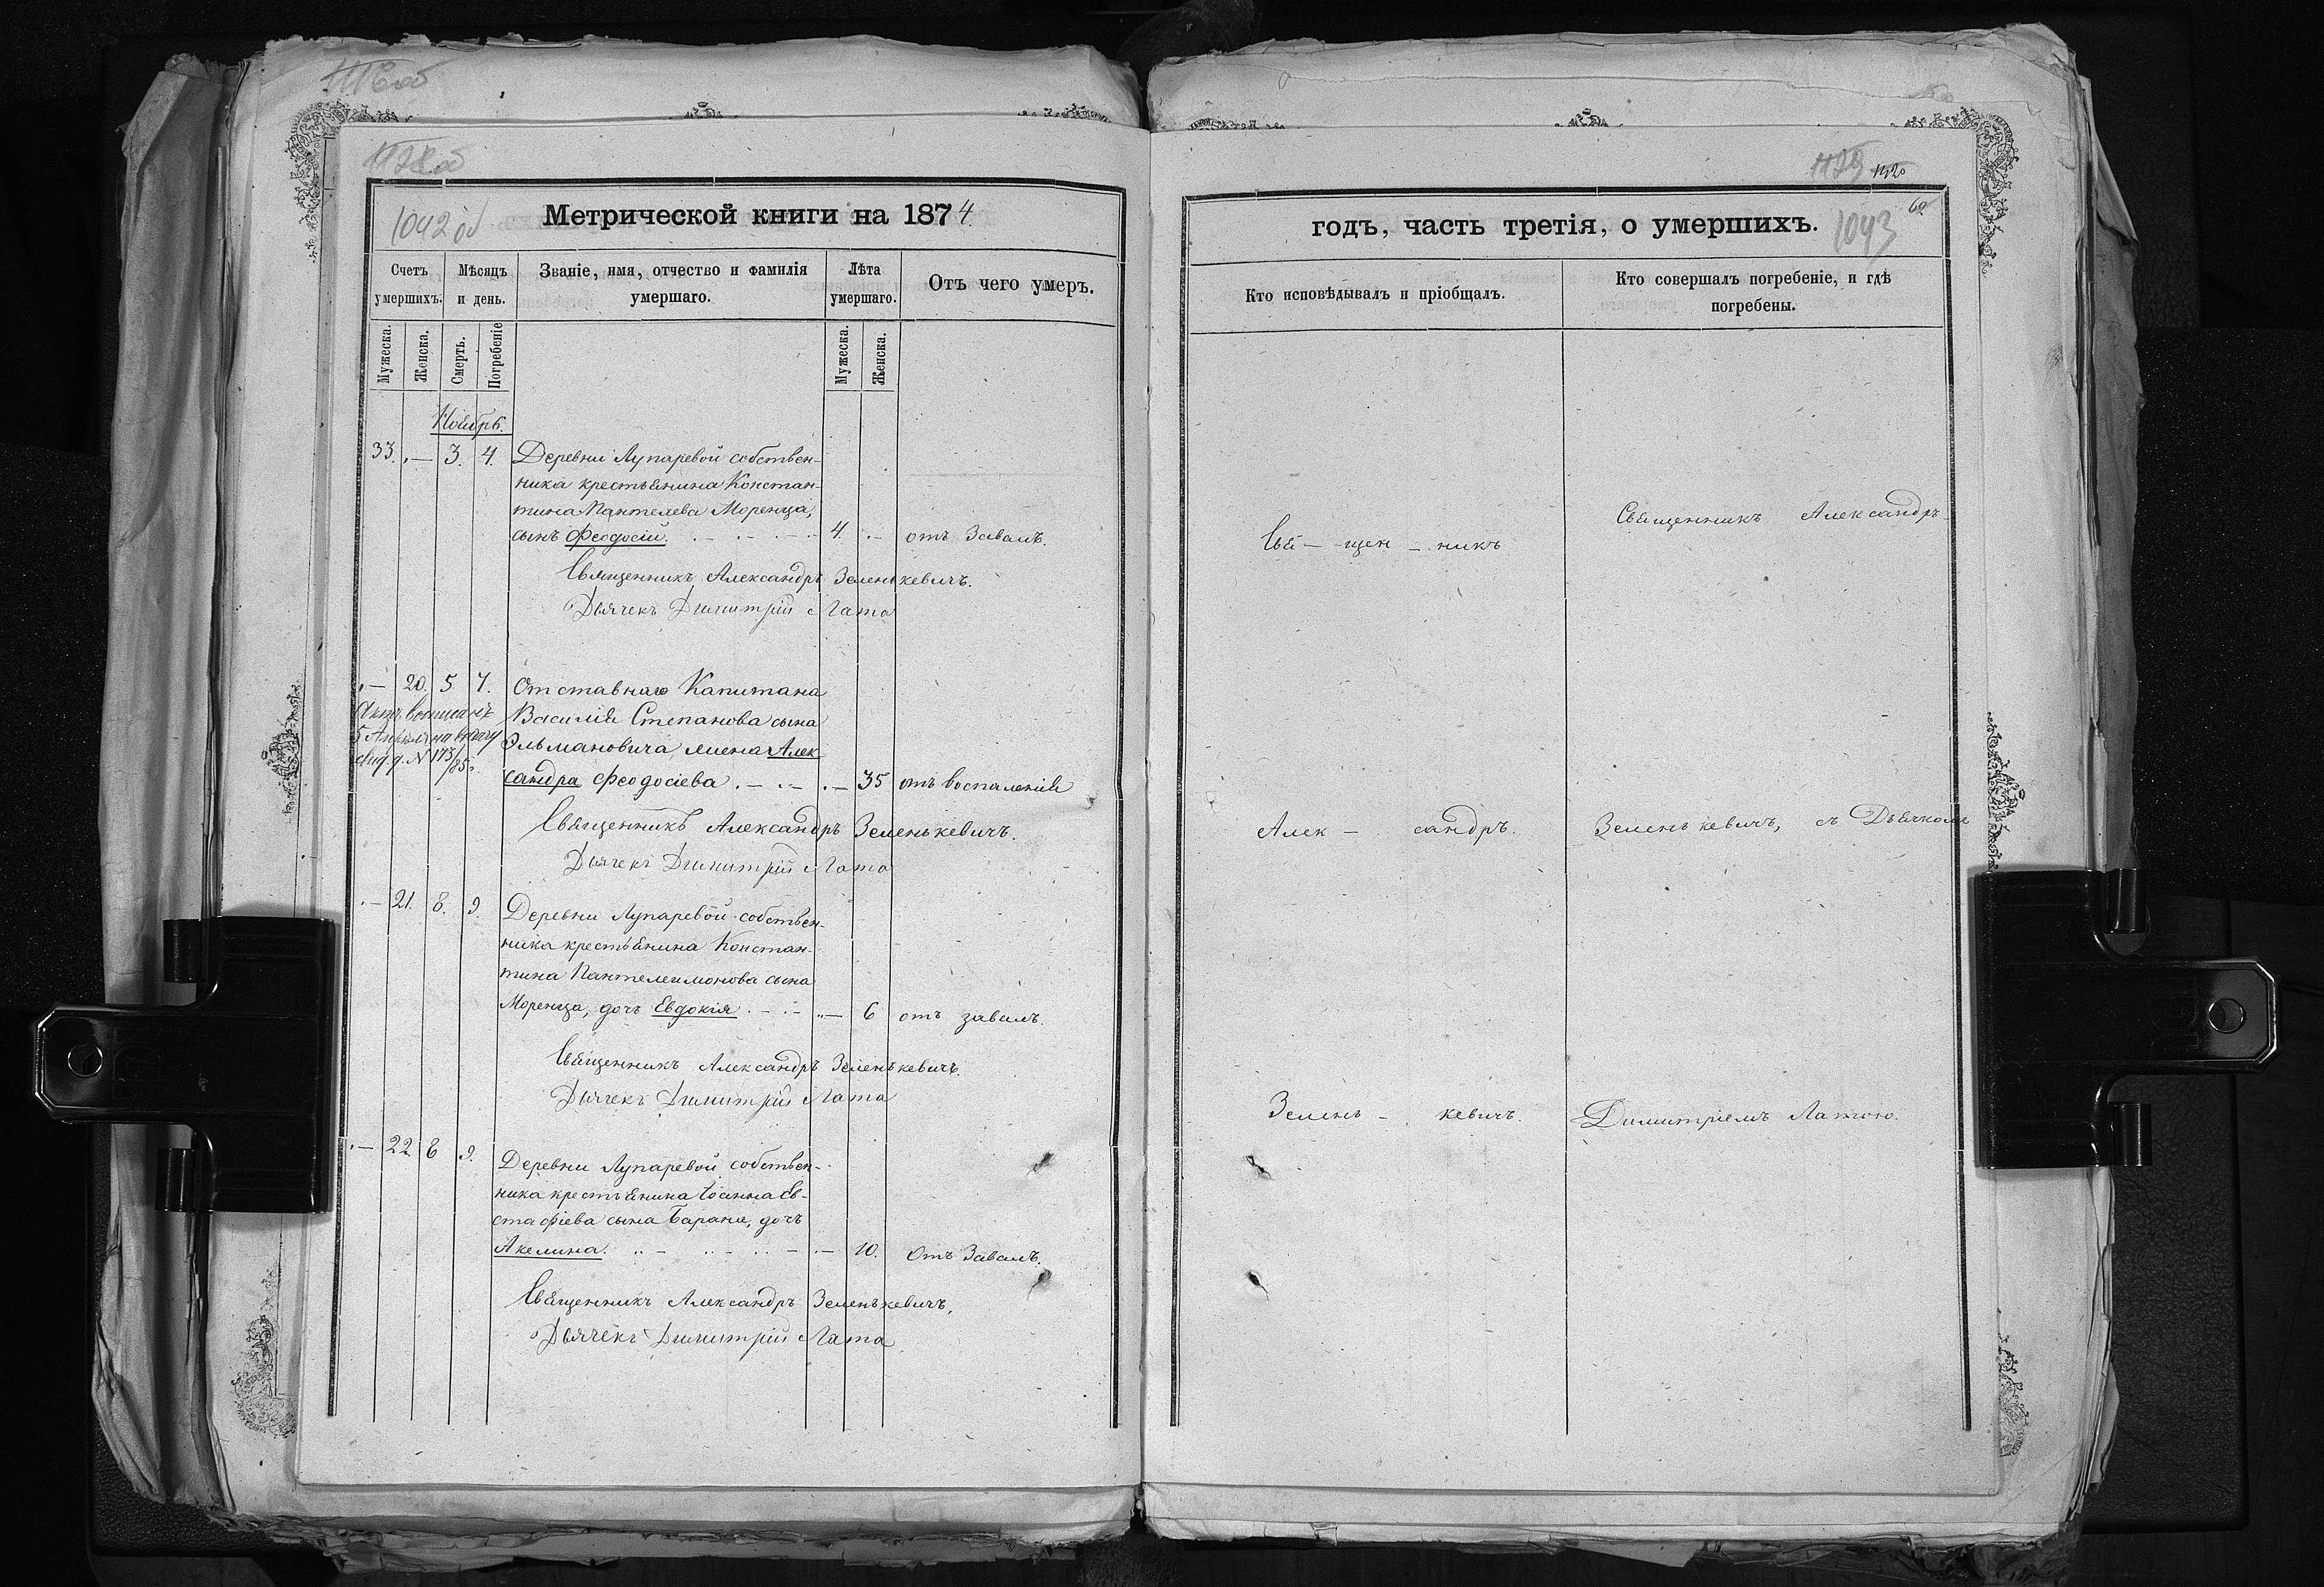 1042 об
Метрической книги на 1874.
Счетъ умершихъ.
Мѣсяцъ и день.
Званіе, имя, отчество и фамилія умершаго.
Лѣта умершаго.
Отъ чего умеръ.
Мужеска.
Женска.
Смерть.
Погребеніе
Мужеска.
Женска.
Ноябрь.
33. „— 3. 4. Деревни Лупаревой собствен-
ника крестьянина Констан-
тина Пантелева Моренца,
сынъ Феодосій. 4. — отъ Завалъ.
Священникъ Александръ Зеленькевичъ.
Дьячекъ Димитрій Лата
„— 20. 5 7. Отставнаго Капитана
Василія Степанова сына
Эльмановича, жена Алек
сандра Феодосіева . — . — . — 35 отъ воспаленія
Священникъ Александръ Зеленькевичъ.
Дьячекъ Димитрій Лата
„— 21. 8. 9. Деревни Лупаревой собствен-
ника крестьянина Констан-
тина Пантелеимонова сына
Моренца, дочь Евдокія . — . — „— 6 отъ завалъ.
Священникъ Александръ Зеленькевичъ.
Дьячекъ Димитрій Лата
„— 22 8 9. Деревни Лупаревой собствен-
ника крестьянина Іоанна Ев-
стафіева сына Барана, дочь
Акелина. — 10. Отъ Завалъ.
Священникъ Александръ Зеленькевичъ,
Дьячекъ Димитрій Лата
1120
годъ, часть третія, о умершихъ.
1043
60
Кто исповѣдывалъ и пріобщалъ.
Кто совершалъ погребеніе, и гдѣ
погребены.
Свя — щен — никъ
Священникъ Александръ
Алек — сандръ.
Зеленькевичъ, съ Дьячкомъ
Зелень — кевичъ.
Димитріемъ Латою.